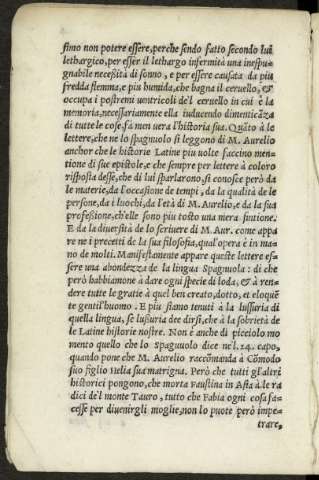 simo non potere essere, perche sendo fatto secondo lui
lethargico, per esser il lethargo infermità una inespu-
gnabile necessità di sonno, e per essere causata da piu
fredda flemma, e piu humida, che bagna il ceruello, &
occupa i postremi uentricoli del ceruello in cui è la
memoria, necessariamente ella inducendo dimenticāza
di tutte le cose, fa men uera l'historia sua. Quāto à le
lettere, che ne lo spagnuolo si leggono di M. Aurelio
anchor che le historie Latine piu uolte faccino men-
tione di sue epistole, e che sempre per lettere à coloro
risposta desse, che di lui sparlarono, si conosce però da
le materie, da l'occasione de tempi, da la qualità de le
persone, da i luochi, da l'età di M. Aurelio, e da la sua
professione, ch'elle sono piu tosto una mera fintione.
E da la diuersità de lo scriuere di M. Aur. come appa
re ne i precetti de la sua filosofia, qual opera è in ma-
no de molti. Manifestamente appare queste lettere es-
sere una abondezza de la lingua Spagnuola : di che
però habbiamone à dare ogni specie di loda, & à ren-
dere tutte le gratie à quel ben creato, dotto, et eloquē
te gentil'huomo : E piu siamo tenuti à la lussuria di
quella lingua, se lussuria dee dirsi, che à la sobrietà de
le Latine historie nostre. Non è anche di picciolo mo
mento quello che lo Spagnuolo dice nel. 24. capo,
quando pone che M. Aurelio raccōmanda à Cōmodo
suo figlio Helia sua matrigna. Però che tutti gl'altri
historici pongono, che morta Faustina in Asia à le ra
dici del monte Tauro, tutto che Fabia ogni cosa fa-
cesse per diuenirgli moglie, non lo puote però impe-
trare,